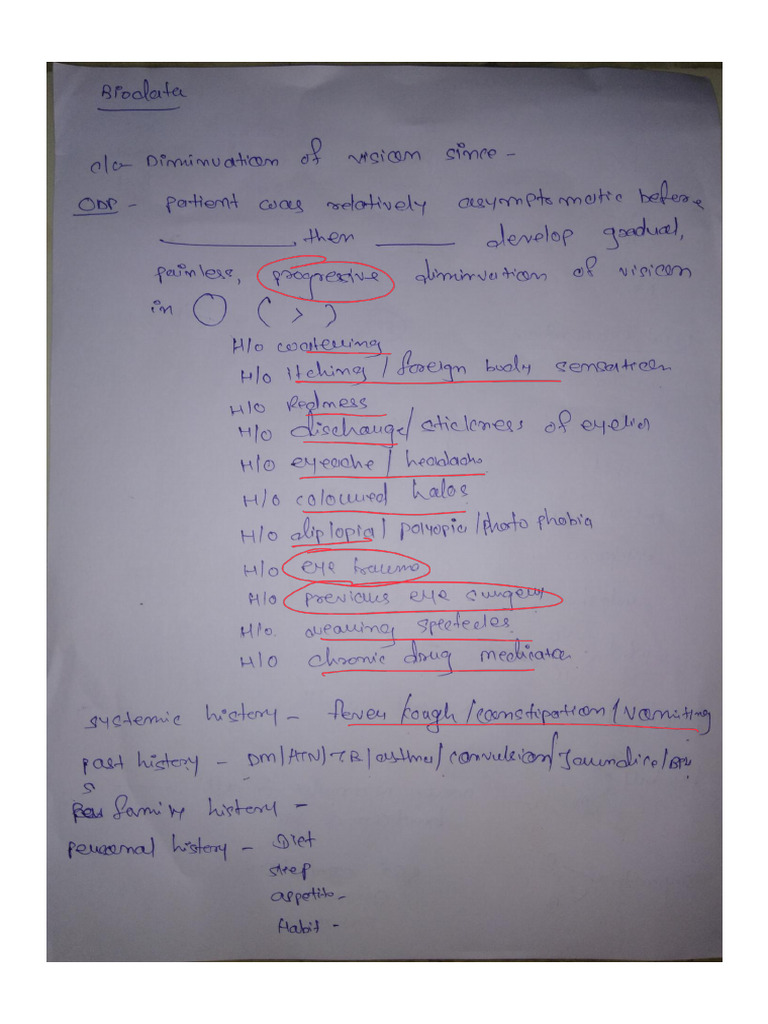 Biodata
c/o Diminuation of vision since -
ODP - patient was relatively asymptomatic before
__________, then ______ develop gradual,
painless, progressive diminuation of vision
in ◯ ( > )
H/o watering
H/o itching / foreign body sensation
H/o Redness
H/o discharge / stickness of eyelid
H/o eyeache / headache
H/o coloured halos
H/o diplopia / polyopia / photo phobia
H/o eye trauma
H/o previous eye surgery
H/o. wearing spectecles
H/o chronic drug medicat
systemic history - fever / cough / constipation / vomiting
past history - DM/HTN/TB/asthma/convulsion/Jaundice/
family history -
personal history - Diet
sleep
appetite -
Habit -